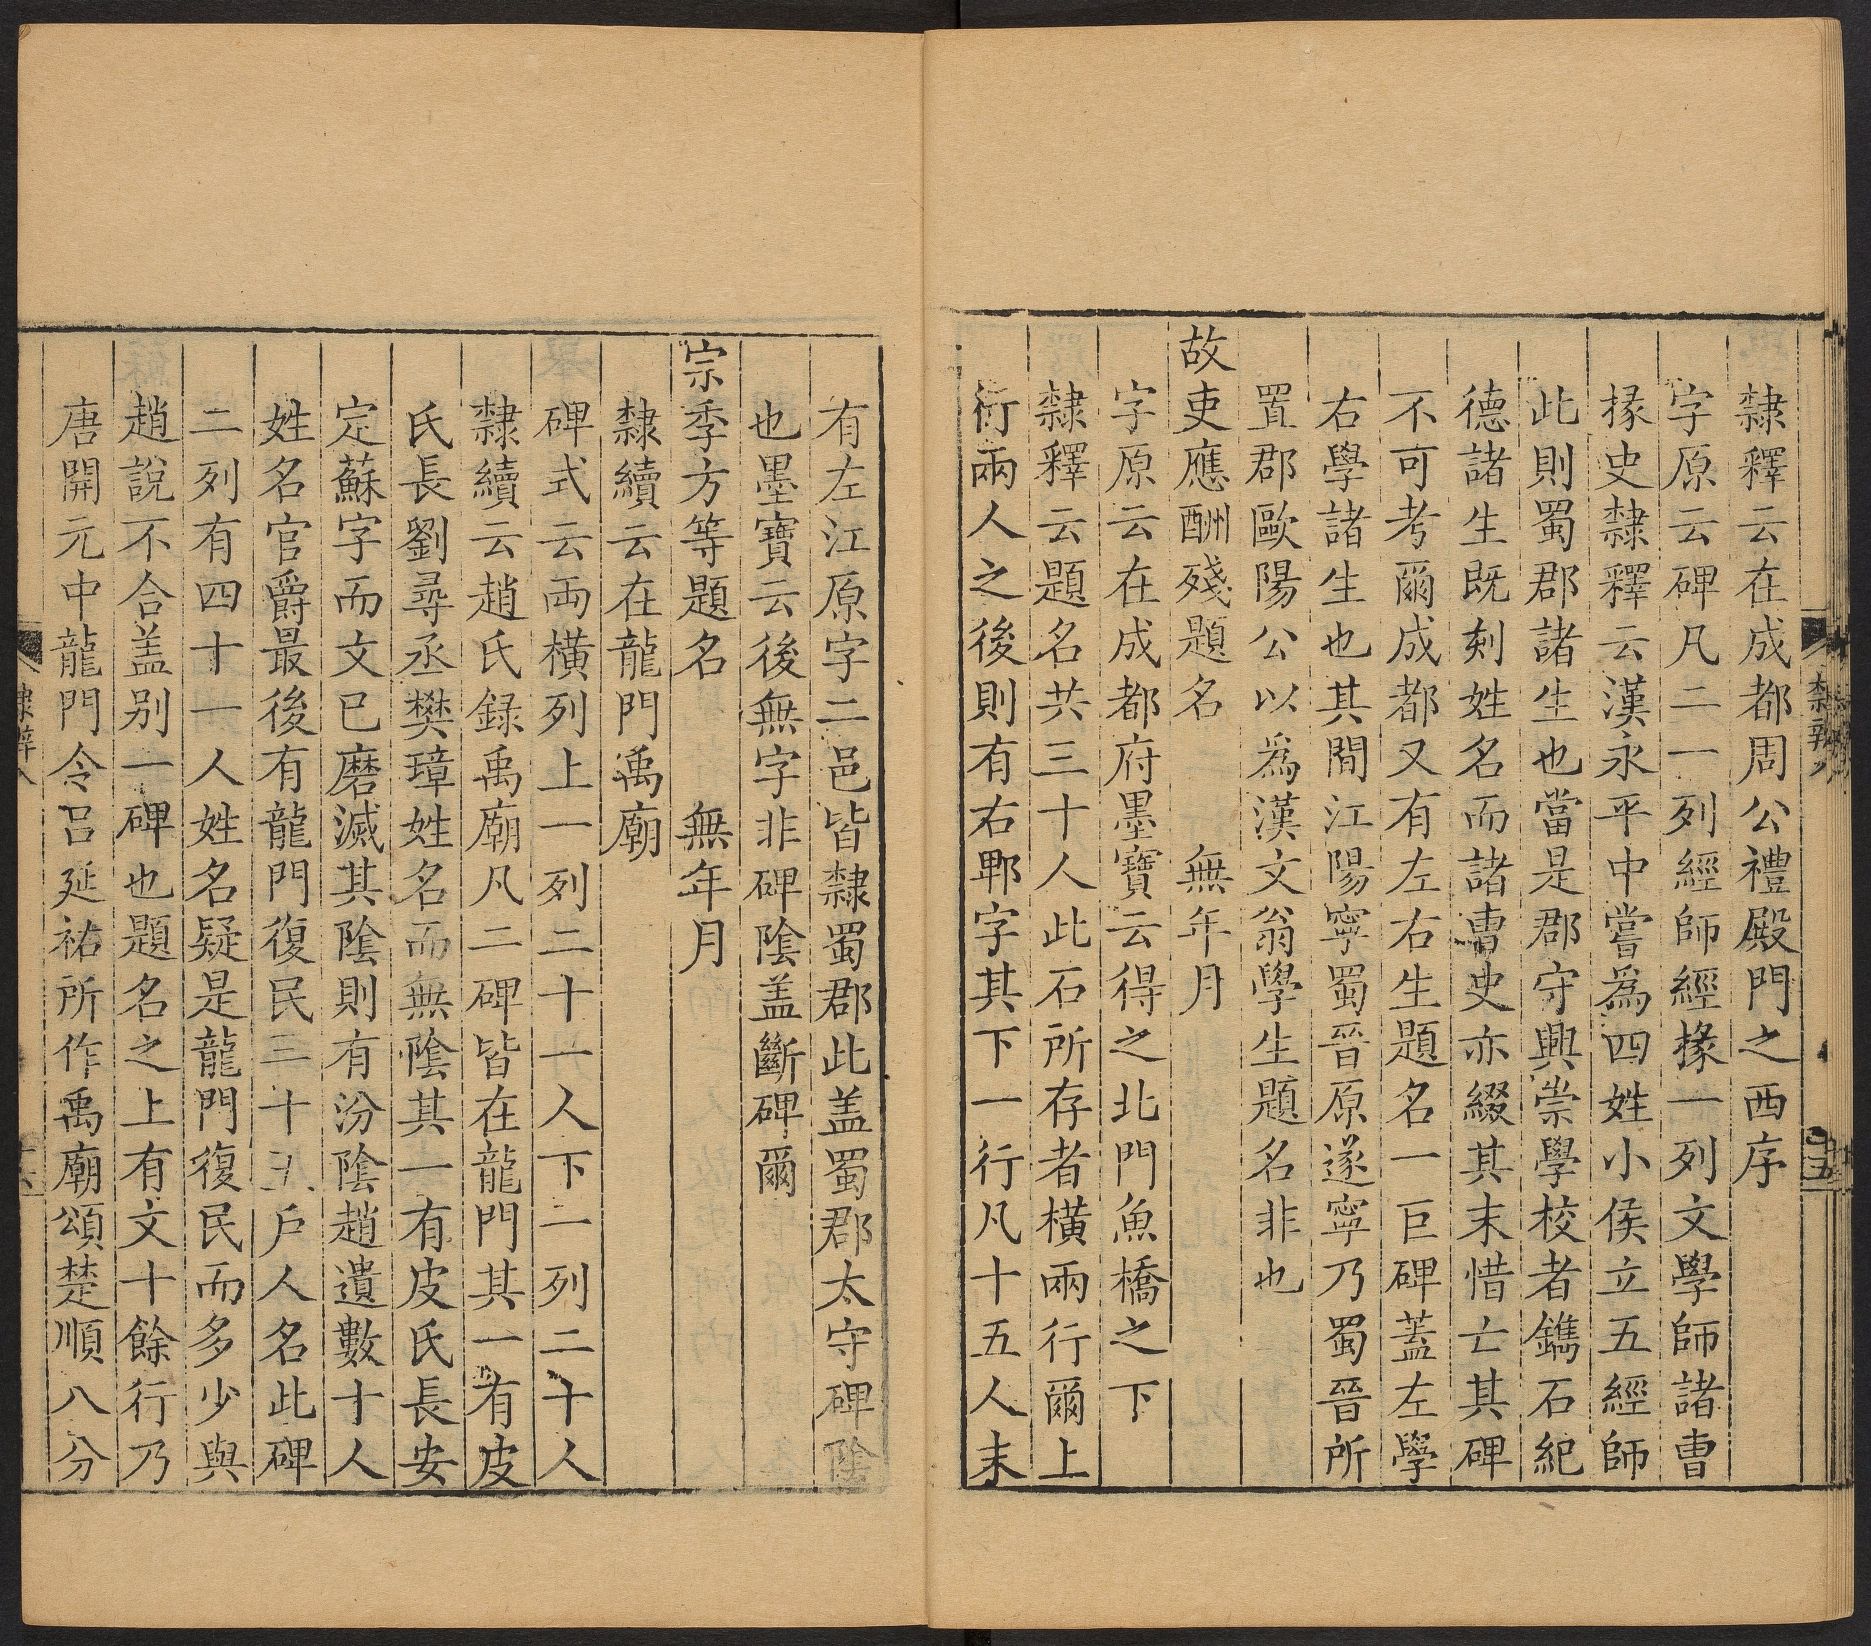 隸釋云在成都周公禮殿門之西序
字原云碑凡二一列經師經掾一列文學師諸曹
掾史隸釋云漢永平中嘗爲四姓小侯立五經師
此則蜀郡諸生也當是郡守興崇學校者鐫石紀
德諸生既刻姓名而諸曹史亦綴其末惜亡其碑
不可考爾成都又有左右生題名一巨碑蓋左學
右學諸生也其間江陽寧蜀晉原遂寧乃蜀晉所
置郡歐陽公以爲漢文翁學生題名非也
故吏應酬殘題名 無年月
字原云在成都府墨寶云得之北門魚橋之下
隸釋云題名共三十人此石所存者橫兩行爾上
行兩人之後則有右鄲字其下一行凡十五人末
有左江原字二邑皆隸蜀郡此盖蜀郡太守碑陰
也墨寶云後無字非碑陰盖斷碑爾
宗季方等題名 無年月
隸續云在龍門禹廟
碑式云両橫列上一列二十一人下一列二十人
隸續云趙氏録禹廟凡二碑皆在龍門其一有皮
氏長劉尋丞樊璋姓名而無陰其一有皮氏長安
定蘇字而文已磨滅其陰則有汾陰趙遺數十人
姓名官爵最後有龍門復民三十戶人名此碑
二列有四十一人姓名疑是龍門復民而多少與
趙說不合盖别一碑也題名之上有文十餘行乃
唐開元中龍門令呂延祐所作禹廟頌楚順八分
隸辨八
十五